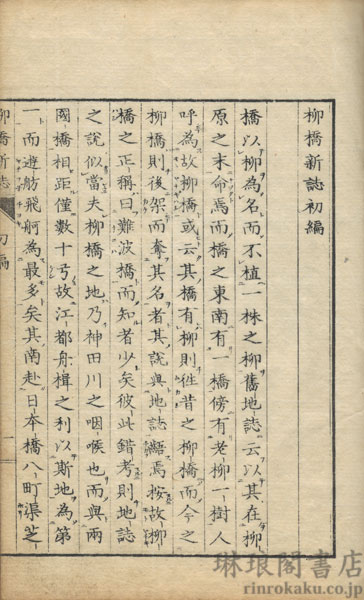 柳橋新誌初編
橋以柳為名而不植一株之柳舊地誌云以其在柳
原之末命焉而橋之東南有一橋傍有老柳一樹人
呼為故柳橋或云其橋有柳則徃昔之柳橋而今之
柳橋則後架而奪其名者其説與地誌齟焉按故柳
橋之正稱曰難波橋而知者少矣彼此錯考則地誌
之説似當夫柳橋之地乃神田川之咽喉也而與兩
國橋相距僅數十弓故江都舟楫之利以斯地為第
一而遊舫飛舸為最多矣其南赴日本橋八町渠芝
柳橋新誌 初編 一
琳琅閣書店
rinrokaku.co.jp